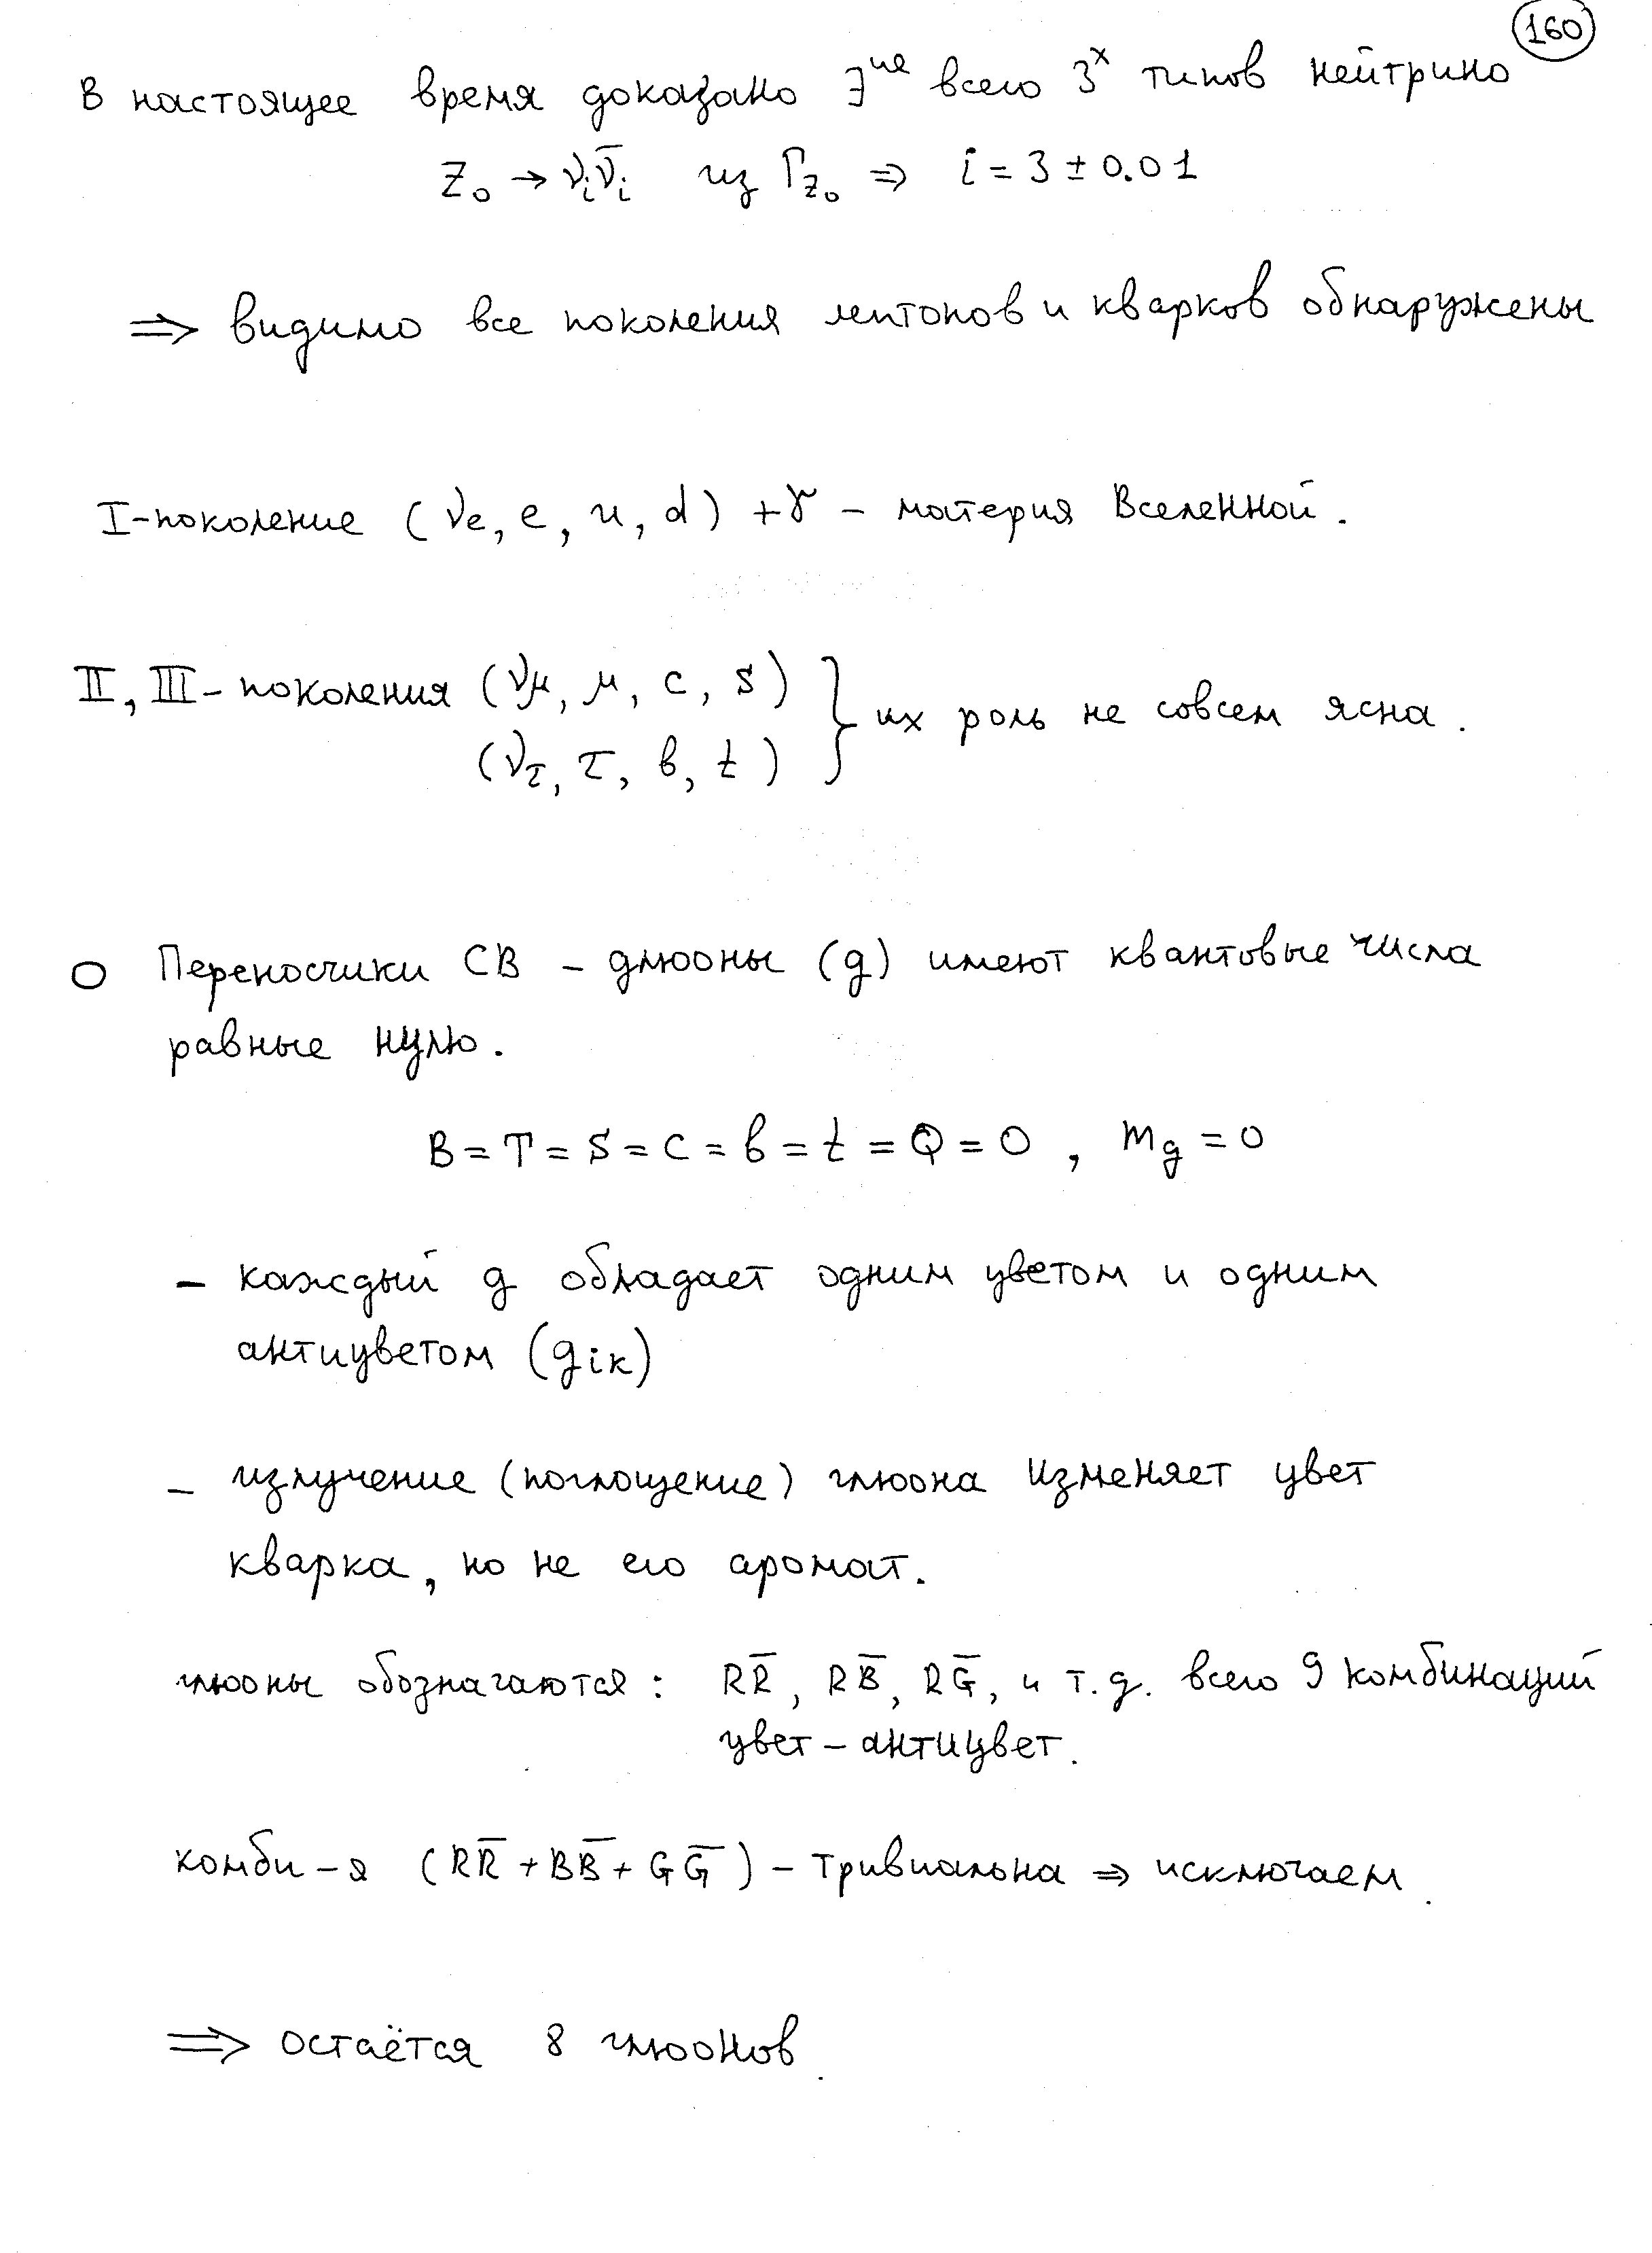 160
В настоящее время доказано ∃ие всего 3х типов нейтрино
Z₀ → ν_i ν̄_i из Γ_Z₀ ⇒ i = 3 ± 0.01
⇒ видимо все поколения лептонов и кварков обнаружены
I-поколение (νe, e, u, d) + γ – материя Вселенной.
II, III – поколения (νμ, μ, c, s)
(ντ, τ, b, t) } их роль не совсем ясна.
О Переносчики СВ – глюоны (g) имеют квантовые числа
равные нулю.
B = T = S = C = b = t = Q = 0, m_g = 0
– каждый g обладает одним цветом и одним
антицветом (g_ik)
– излучение (поглощение) глюона изменяет цвет
кварка, но не его аромат.
глюоны обозначаются: RR̅, RB̅, RG̅, и т.д. всего 9 комбинаций
цвет – антицвет.
комби-я (RR̅ + BB̅ + GG̅) – тривиальна ⇒ исключаем.
⇒ остаётся 8 глюонов.